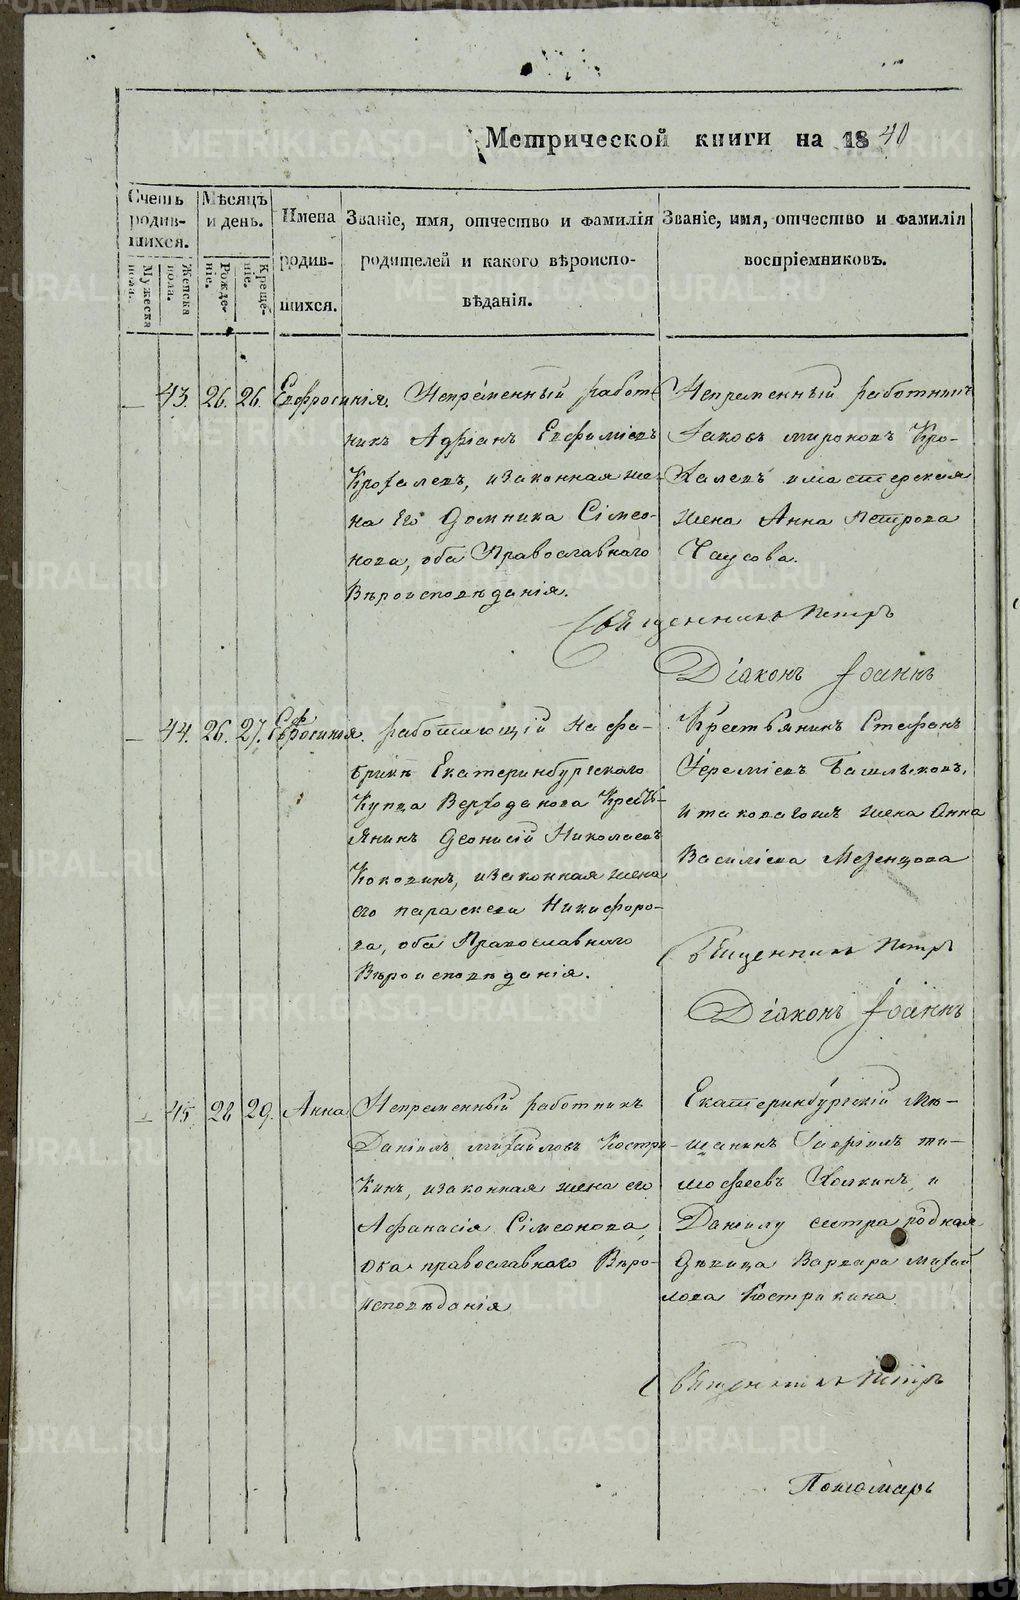 Метрической книги на 1840
Счетъ родив-шихся.
Мужеска пола.
Женска пола.
Мѣсяцъ и день.
Рожде-ніе.
Креще-ніе.
Имена родив-шихся.
Званіе, имя, отчество и фамилія
родителей и какого вѣроиспо-
вѣданія.
Званіе, имя, отчество и фамилія
воспріемниковъ.
— 43. 26. 26. Евфросинія.
Непременный работ-
никъ Адріанъ Евфиміевъ
Крохалевъ, и законная же-
на его Домника Сімео-
нова, оба Православнаго
Вѣроисповѣданія.
Непременный работникъ
Іаковъ Мироновъ Кро-
халевъ и мастерская
жена Анна Петрова
Чаусова.
Священникъ Петръ
Діаконъ Іоаннъ
— 44. 26. 27. Евфросинія.
работающій на фа-
брикѣ Екатеринбургскаго
Купца Верходанова Кресть-
янинъ Деонисій Николаевъ
Коковинъ, и законная жена
его Параскева Никифоро-
ва, оба Православнаго
Вѣроисповѣданія.
Крестьянинъ Стефанъ
Іереміевъ Башлыковъ,
и таковагожъ жена Анна
Василіева Мезенцова
Священникъ Петръ
Діаконъ Іоаннъ
— 45. 28 29. Анна
Непременный работникъ
Даніилъ Михайловъ Костри-
кинъ, и законная жена его
Афанасія Сімеонова,
оба православнаго Вѣро-
исповѣданія
Екатеринбургскій Мѣ-
щанинъ Гавріилъ Ти-
мофеевъ Холкинъ, и
Данилу сестра родная
Дѣвица Варвара Михай
лова Кострикина
Священникъ Петръ
Пономарь
METRIKI.GASO-URAL.RU